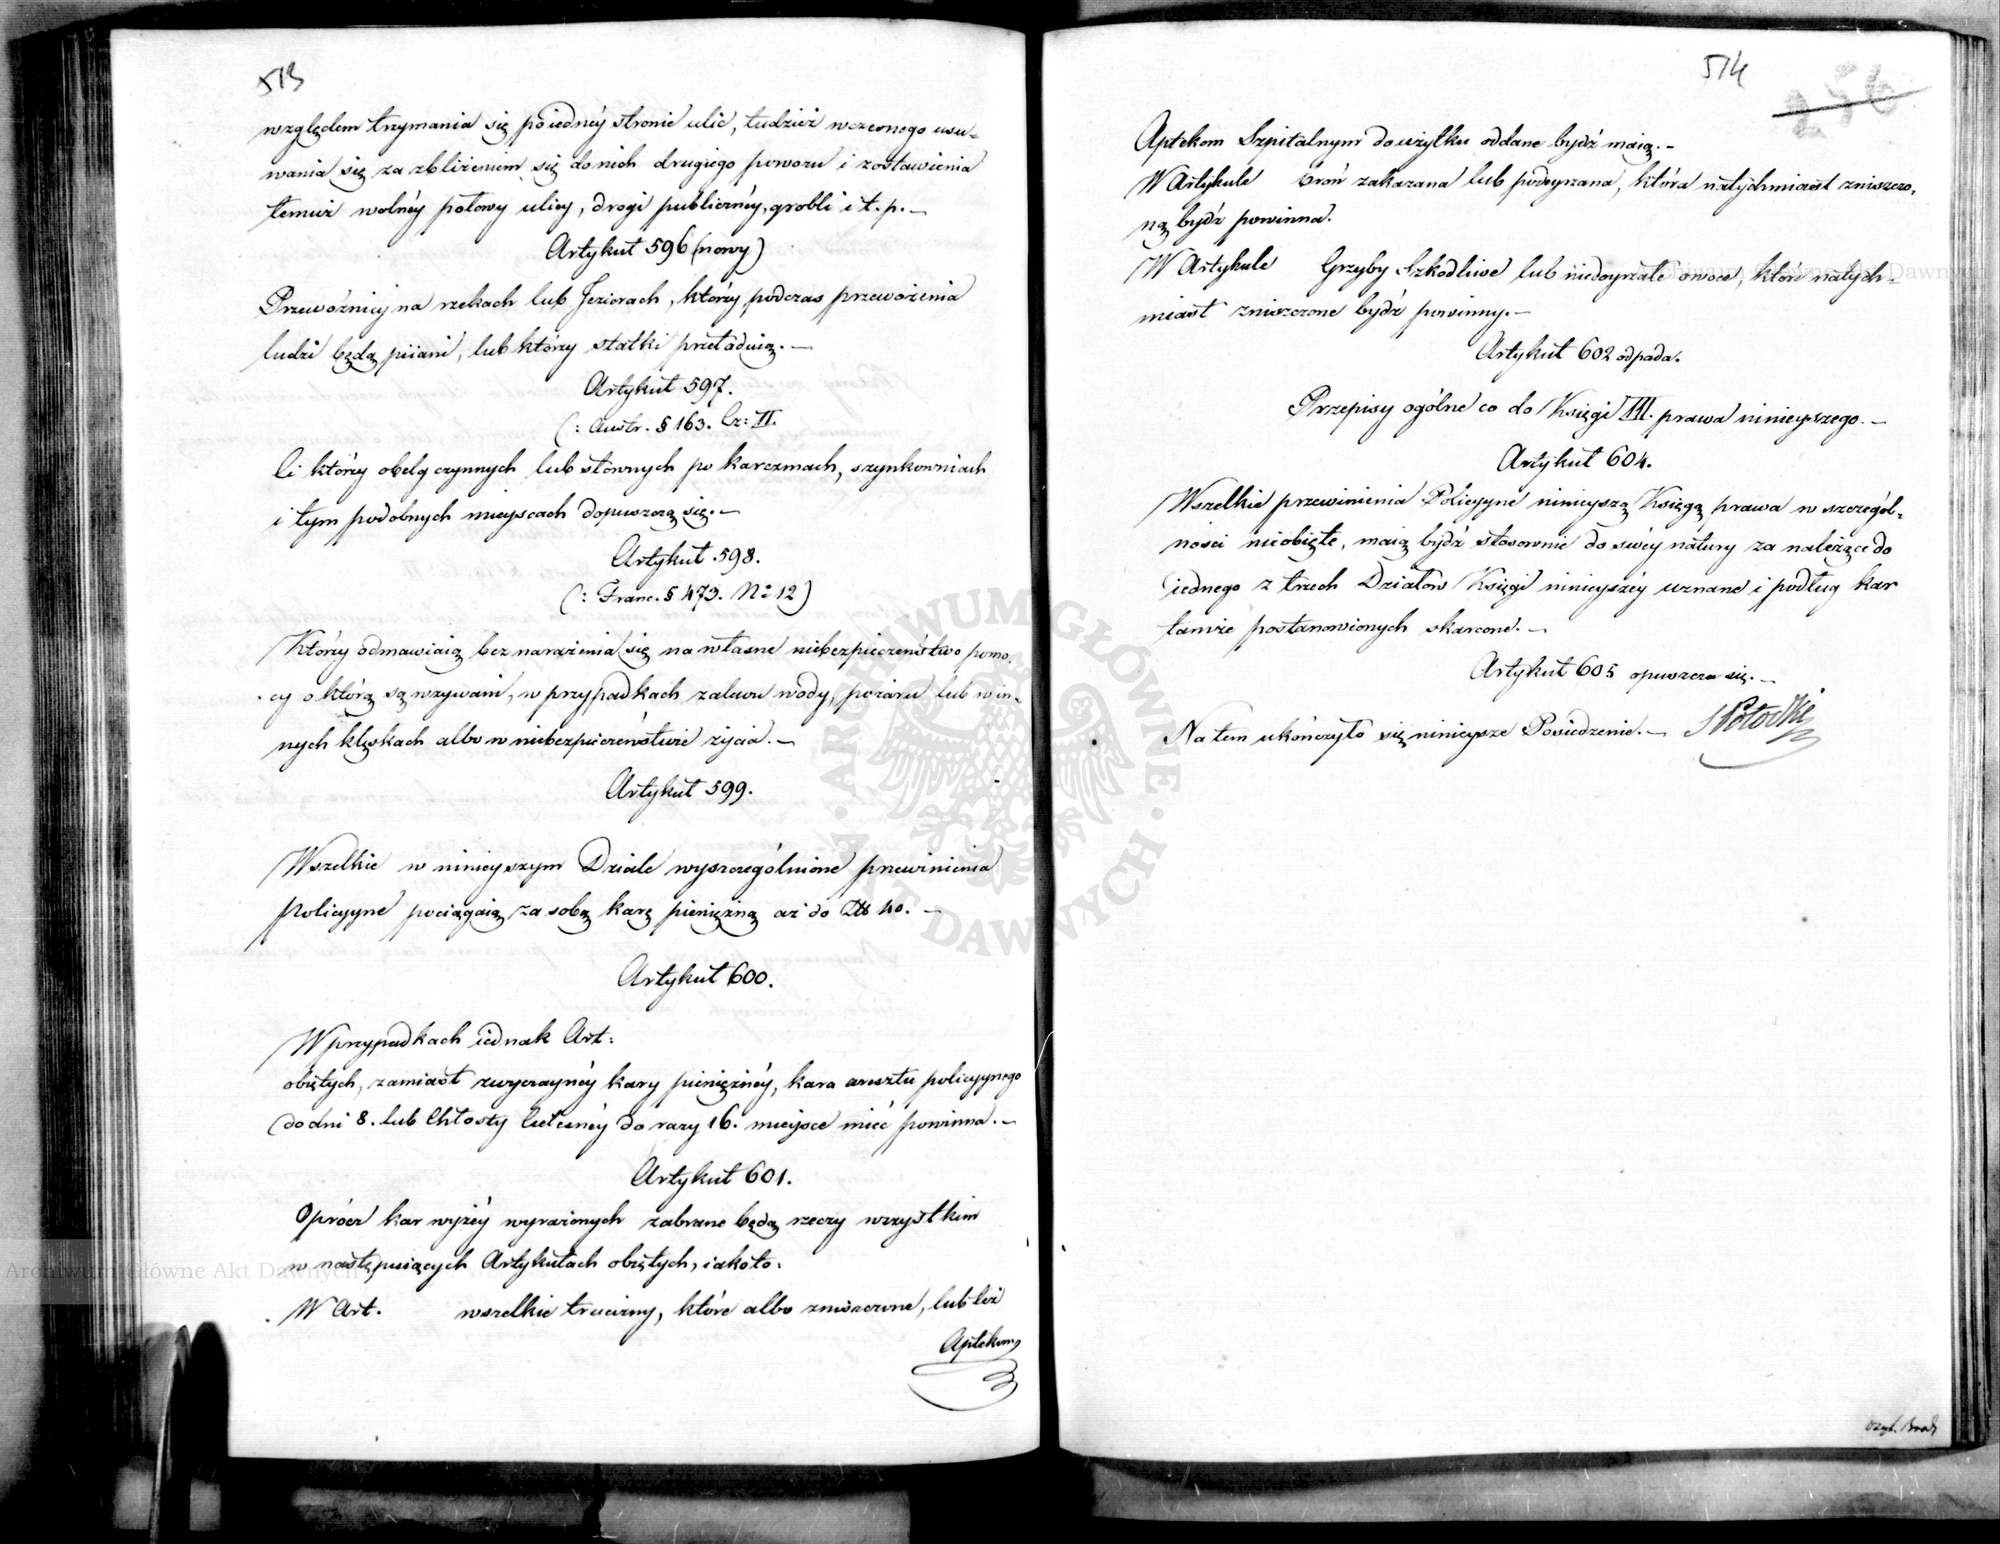 513
względem trzymania się po iednéy stronie ulic, tudzież wczesnego usu-
wania się za zbliżeniem się do nich drugiego powozu i zostawienia
temuż wolnéy połowy ulicy, drogi publicznéy, grobli i t. p. –
Artykuł 596 (nowy)
Przewoźnicy na rzekach lub Jeziorach, którzy podczas przewożenia
ludzi będą piiani, lub którzy statki przeładuią. –
Artykuł 597.
(: Austr. § 163. Cz: II.
Ci którzy obelg czynnych lub słownych po karczmach, szynkowniach
i tym podobnych mieyscach dopuszczą się. –
Artykuł 598.
(: Franc. § 473. No 12)
Którzy odmawiaią bez narażenia się na własne niebezpieczeństwo pomo-
cy o którą są wzywani, w przypadkach zalewu wody, pożaru lub w in-
nych klęskach albo w niebezpieczeństwie życia. –
Artykuł 599.
Wszelkie w ninieyszym Dziale wyszczególnione przewinienia
Policyyne pociągaią za sobą karę pieniężną aż do Zł 40. –
Artykuł 600.
W przypadkach iednak Art:
obiętych, zamiast zwyczaynéy kary pieniężnéy, kara aresztu policyynego
do dni 8. lub Chłosty Cielesnéy do razy 16. mieysce mieć powinna. –
Artykuł 601.
Oprócz kar wyżéy wyrażonych zabrane będą rzeczy wszystkim
w następuiących Artykułach obiętych, iakoto:
W Art. wszelkie trucizny, które albo zniszczone, lub też
Aptekom
514
Aptekom Szpitalnym do użytku oddane bydź maią. –
W Artykule broń zakazana lub podeyrzana, która natychmiast zniszczo-
ną bydź powinna.
W Artykule Grzyby Szkodliwe lub niedoyrzałe owoce, które natych-
miast zniszczone bydź powinny. –
Artykuł 602 odpada.
Przepisy ogólne co do Księgi III. prawa ninieyszego. –
Artykuł 604.
Wszelkie przewinienia Policyyne ninieyszą Księgą prawa w szczegól-
ności nieobięte, maią bydź stosownie do swéy natury za należące do
iednego z trzech Działów Księgi ninieyszéy uznane i podług kar
tamże postanowionych skarcone. –
Artykuł 605 opuszcza się. –
Na tem ukończyło się ninieysze Posiedzenie. –
Archiwum Główne Akt Dawnych
Archiwum Główne Akt Dawnych
ARCHIWUM GŁÓWNE AKT DAWNYCH